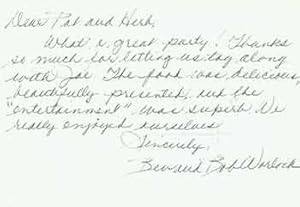 Dear Pat and Herb,
What a great party! Thanks
so much for letting us tag along
with Joe. The food was delicious,
beautifully presented, and the
"entertainment" was superb. We
really enjoyed ourselves.
Sincerely,
Bev and Bob Warlock